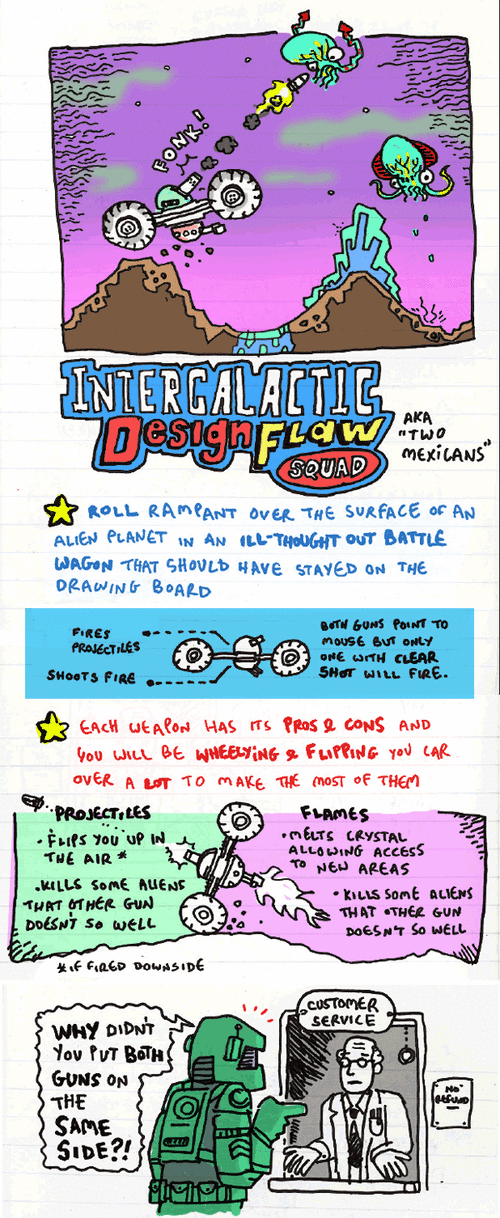 FONK!
INTERGALACTIC
DESIGN FLAW
SQUAD
AKA
"TWO
MEXICANS"
ROLL RAMPANT OVER THE SURFACE OF AN
ALIEN PLANET IN AN ILL-THOUGHT OUT BATTLE
WAGON THAT SHOULD HAVE STAYED ON THE
DRAWING BOARD
FIRES
PROJECTILES
SHOOTS FIRE
BOTH GUNS POINT TO
MOUSE BUT ONLY
ONE WITH CLEAR
SHOT WILL FIRE.
EACH WEAPON HAS ITS PROS & CONS AND
YOU WILL BE WHEELYING & FLIPPING YOU CAR
OVER A LOT TO MAKE THE MOST OF THEM
PROJECTILES
• FLIPS YOU UP IN
THE AIR *
• KILLS SOME ALIENS
THAT OTHER GUN
DOESN'T SO WELL
* IF FIRED DOWNSIDE
FLAMES
• MELTS CRYSTAL
ALLOWING ACCESS
TO NEW AREAS
• KILLS SOME ALIENS
THAT OTHER GUN
DOESN'T SO WELL
WHY DIDN'T
YOU PUT BOTH
GUNS ON
THE
SAME
SIDE?!
CUSTOMER
SERVICE
NO
REFUND